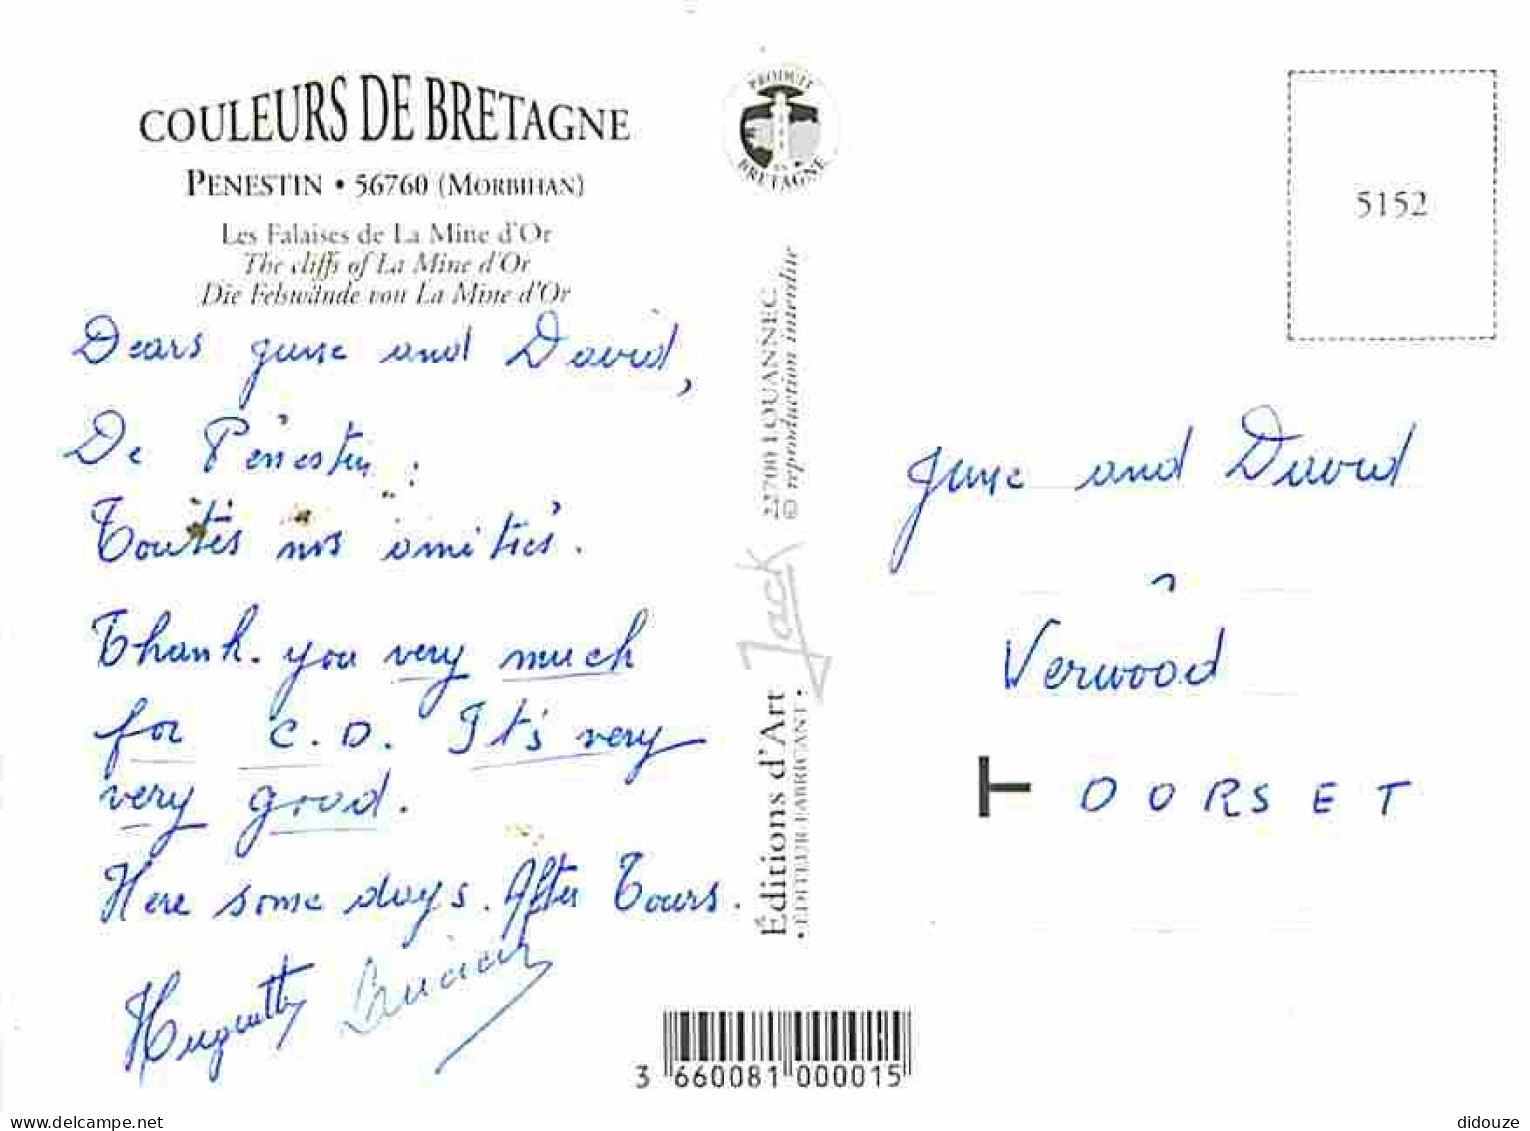 COULEURS DE BRETAGNE
PENESTIN • 56760 (MORBIHAN)
Les Falaises de La Mine d'Or
The cliffs of La Mine d'Or
Die Felswände von La Mine d'Or
Dears June and David,
De Pénestin :
Toutes nos amitiés.
Thank. you very much
for C.D. It's very
very good.
Here some days. After Tours.
Huguette Lucien
PRODUIT
EN
BRETAGNE
22700 LOUANNEC
© reproduction interdite
Jack
Éditions d'Art
• ÉDITEUR FABRICANT •
5152
June and David
à
Verwood
DORSET
3 660081 000015
didouze